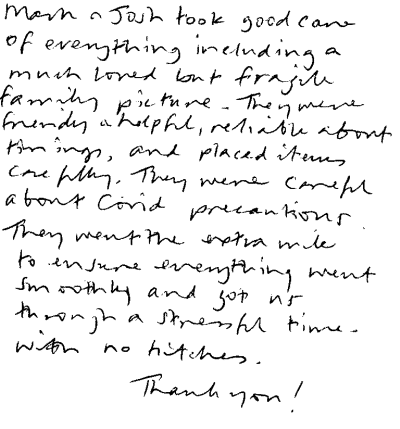 Mark & Josh took good care
of everything including a
much loved but fragile
family picture. They were
friendly & helpful, reliable about
timings, and placed items
carefully. They were careful
about Covid precautions.
They went the extra mile
to ensure everything went
smoothly and got us
through a stressful time.
with no hitches.
Thank you!